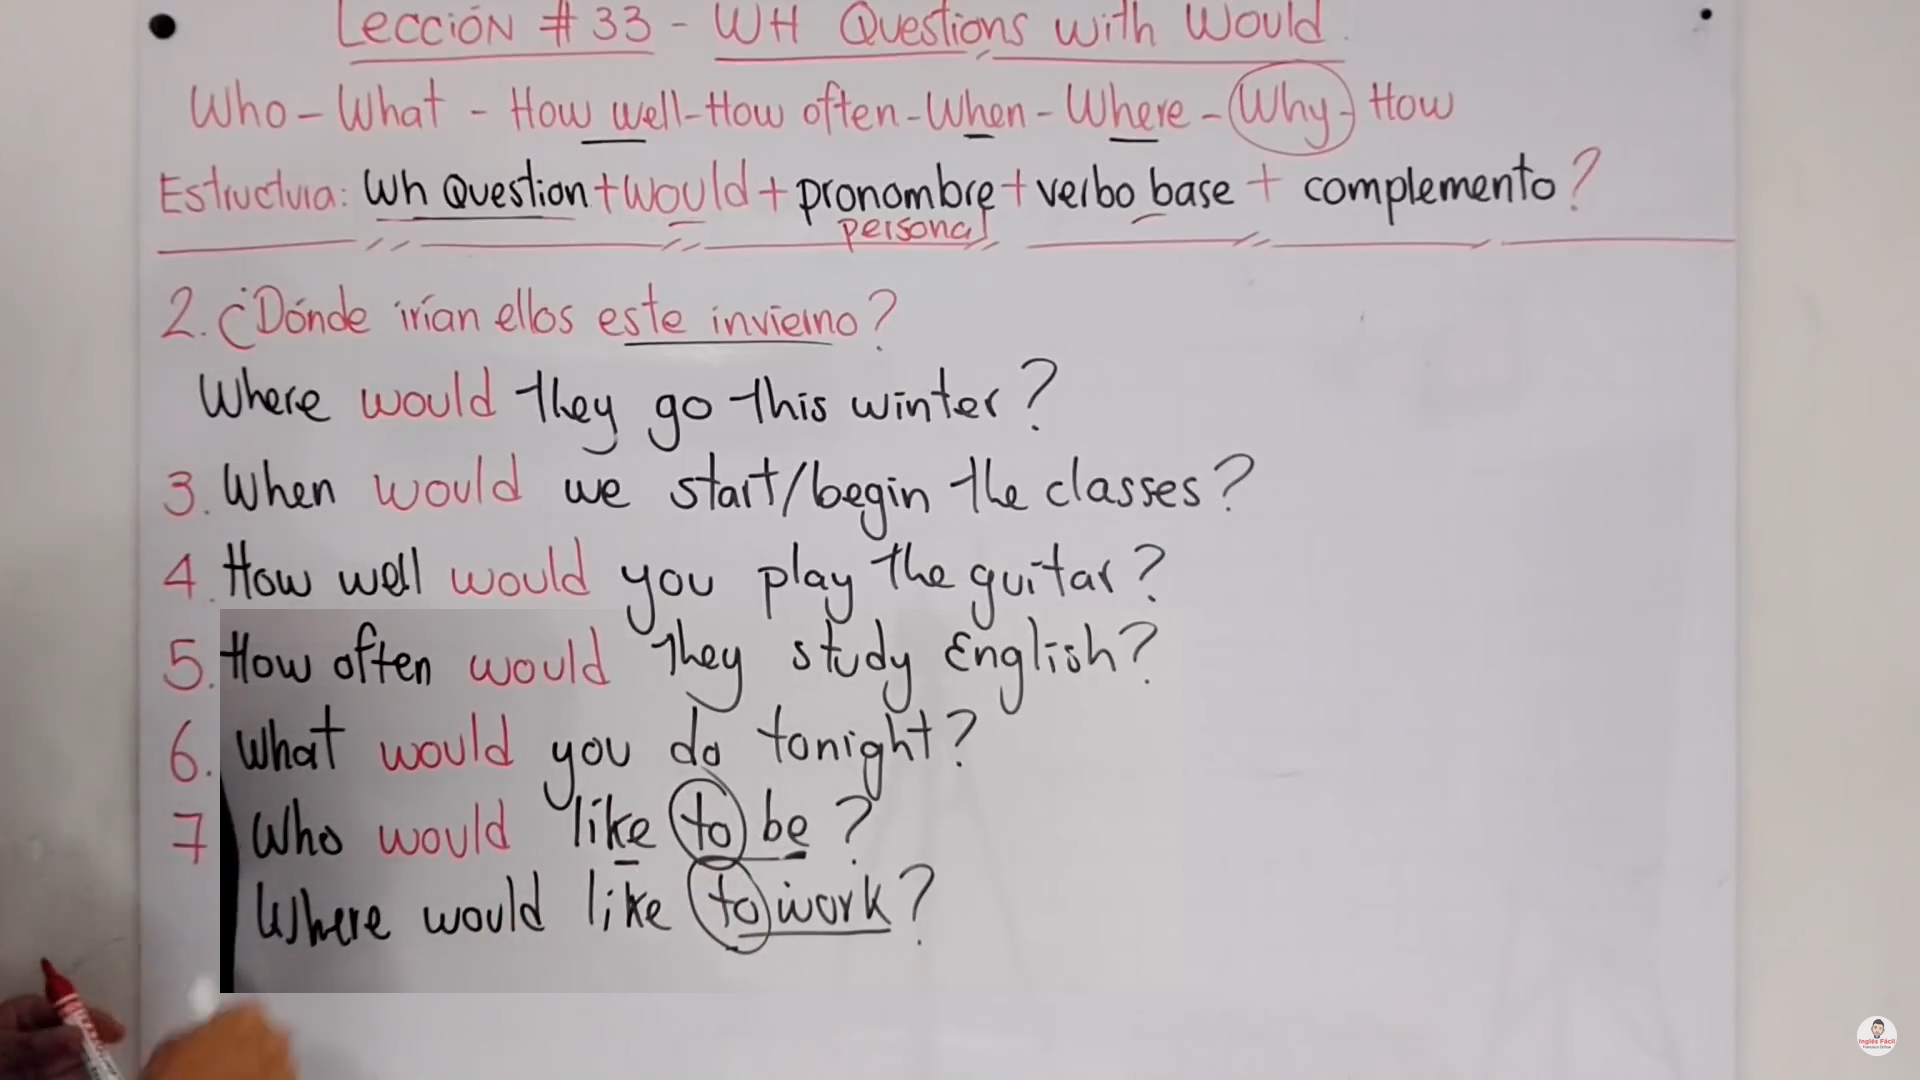 Lección # 33 - WH Questions with Would.
Who - What - How well - How often - When - Where - Why - How
Estructura: Wh Question + Would + pronombre + verbo base + complemento?
personal
2. ¿Dónde irían ellos este invierno?
Where would they go this winter?
3. When would we start/begin the classes?
4. How well would you play the guitar?
5. How often would they study English?
6. What would you do tonight?
7 Who would like to be?
Where would like to work?
Inglés Fácil